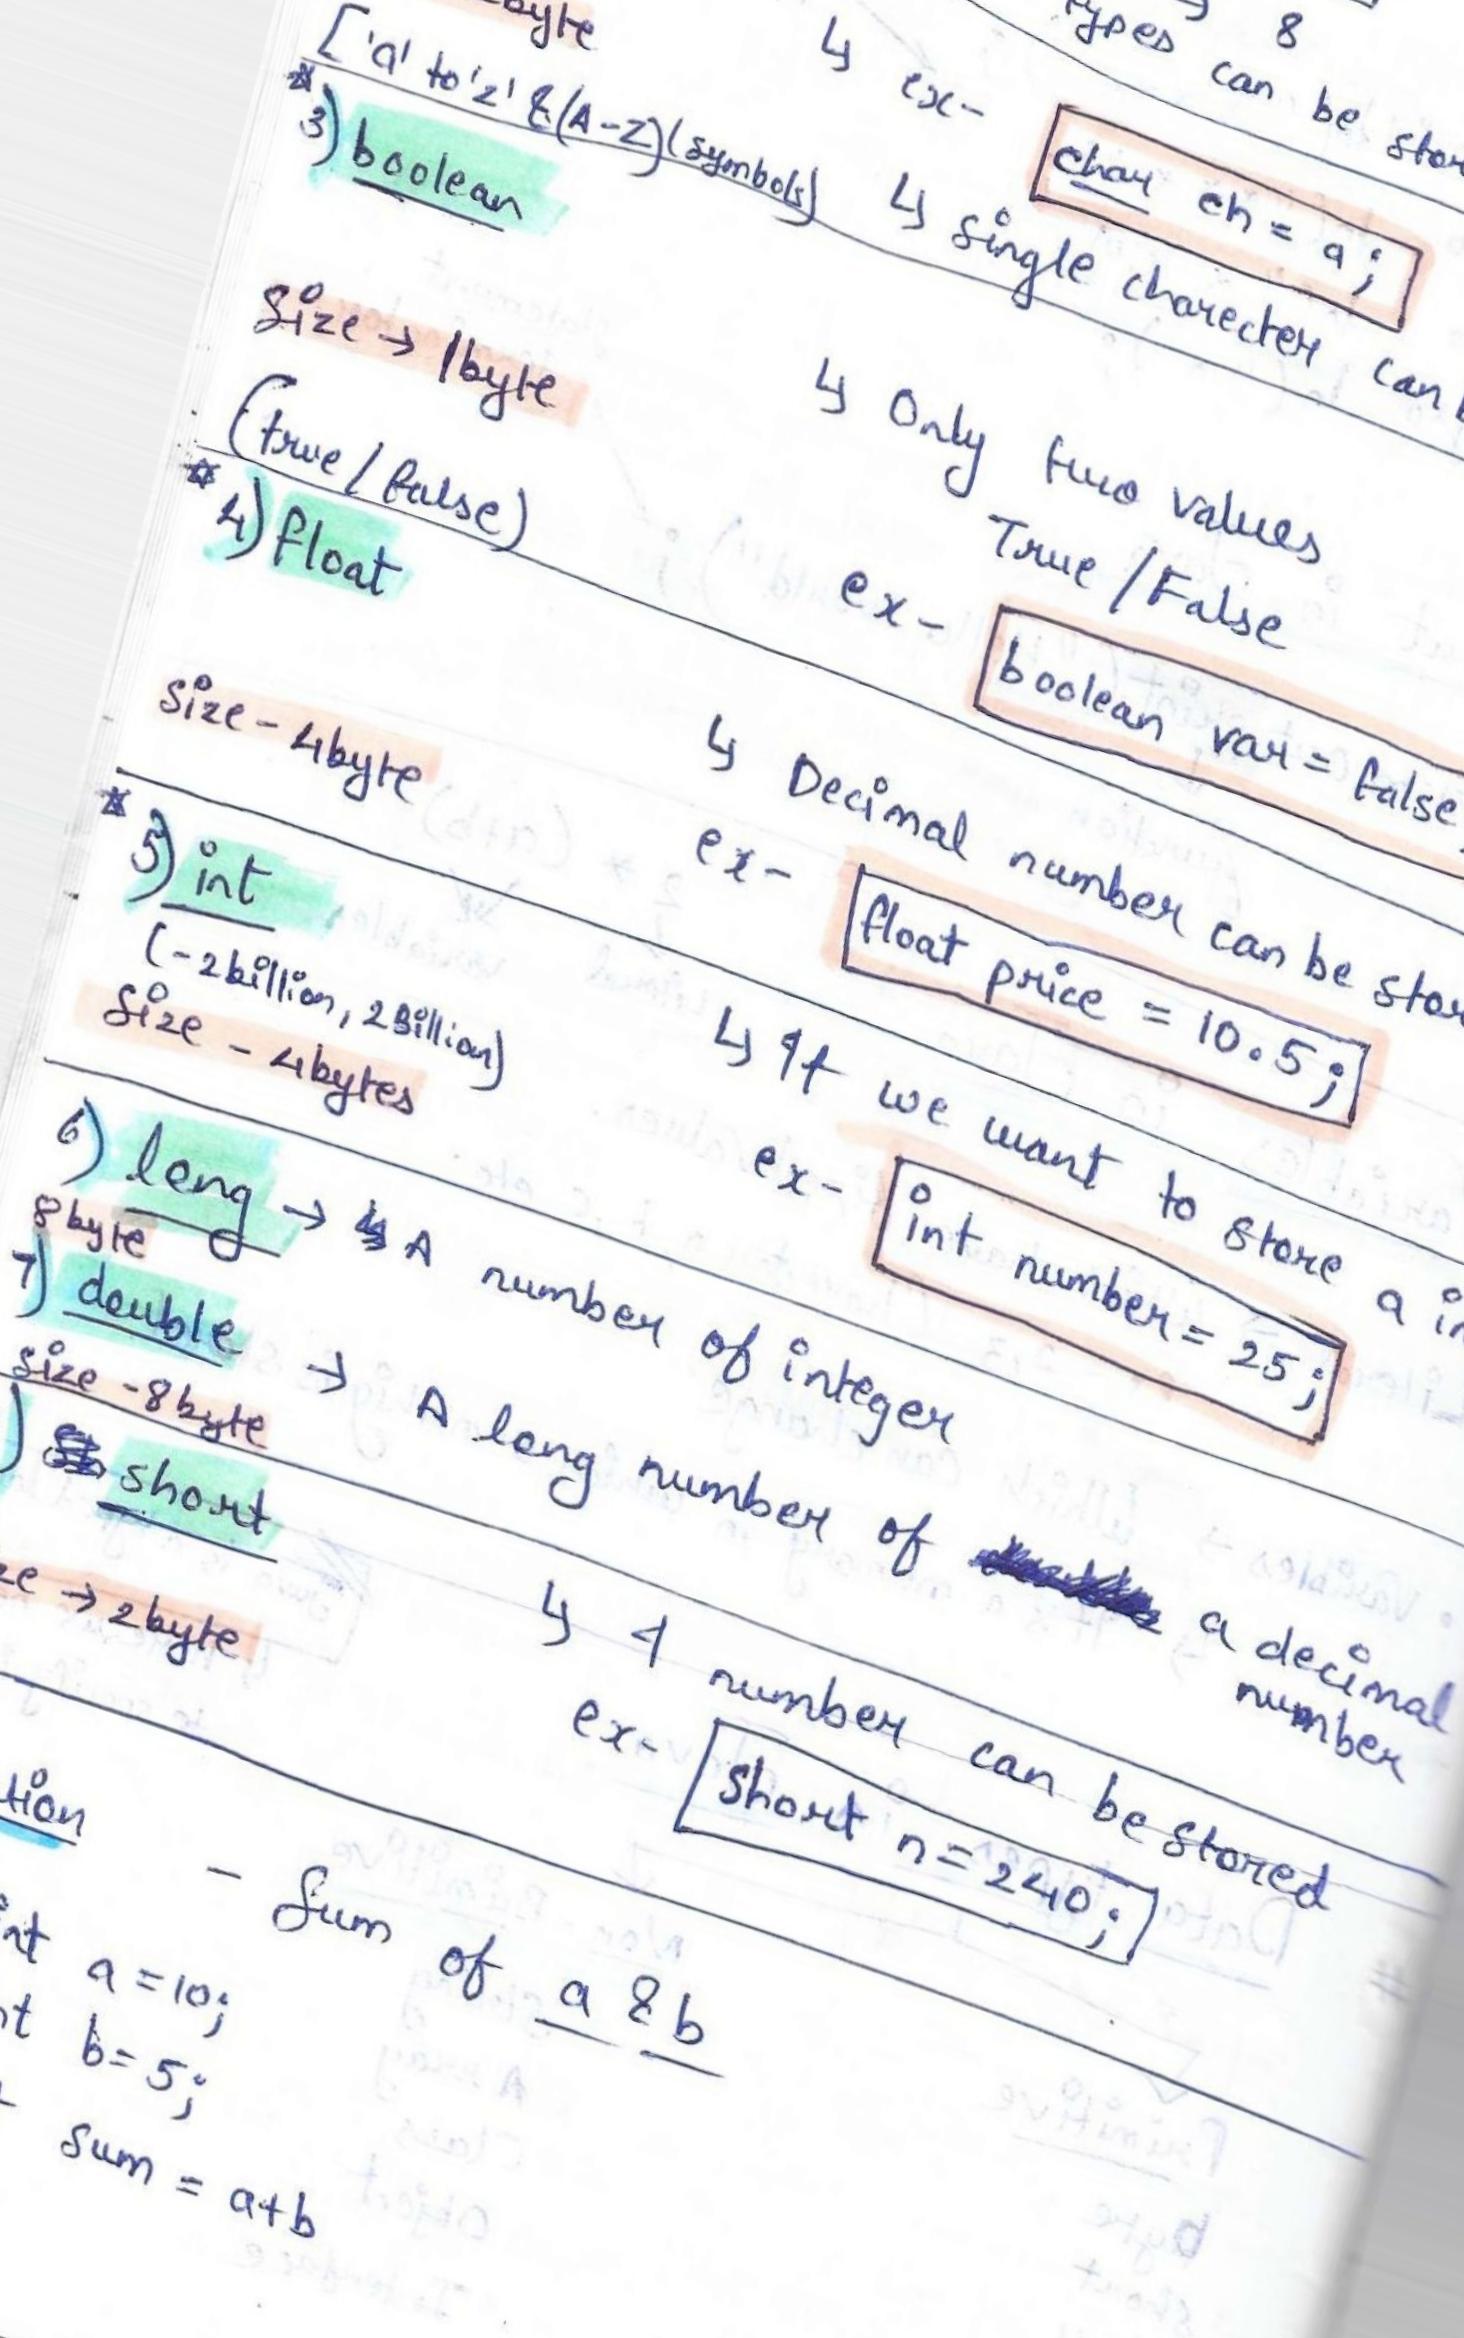 byte
8
types can be stor
['a' to 'z' & (A-Z) (symbols)
↳ ex-
char ch = a;
↳ single charecter can b
* 3) boolean
Size → 1byte
(true / false)
↳ Only two values
True / False
ex-
boolean var = false;
* 4) float
Size - 4byte
↳ Decimal number can be stor
ex-
float price = 10.5;
* 5) int
(-2billion, 2Billion)
Size - 4bytes
↳ If we want to store a in
ex-
int number = 25;
6) long → A number of integer
8byte
7) double → A long number of a decimal
number
size - 8byte
) short
ze → 2byte
↳ A number can be stored
ex-
short n = 240;
tion
- Sum of a & b
int a = 10;
nt b = 5;
sum = a+b